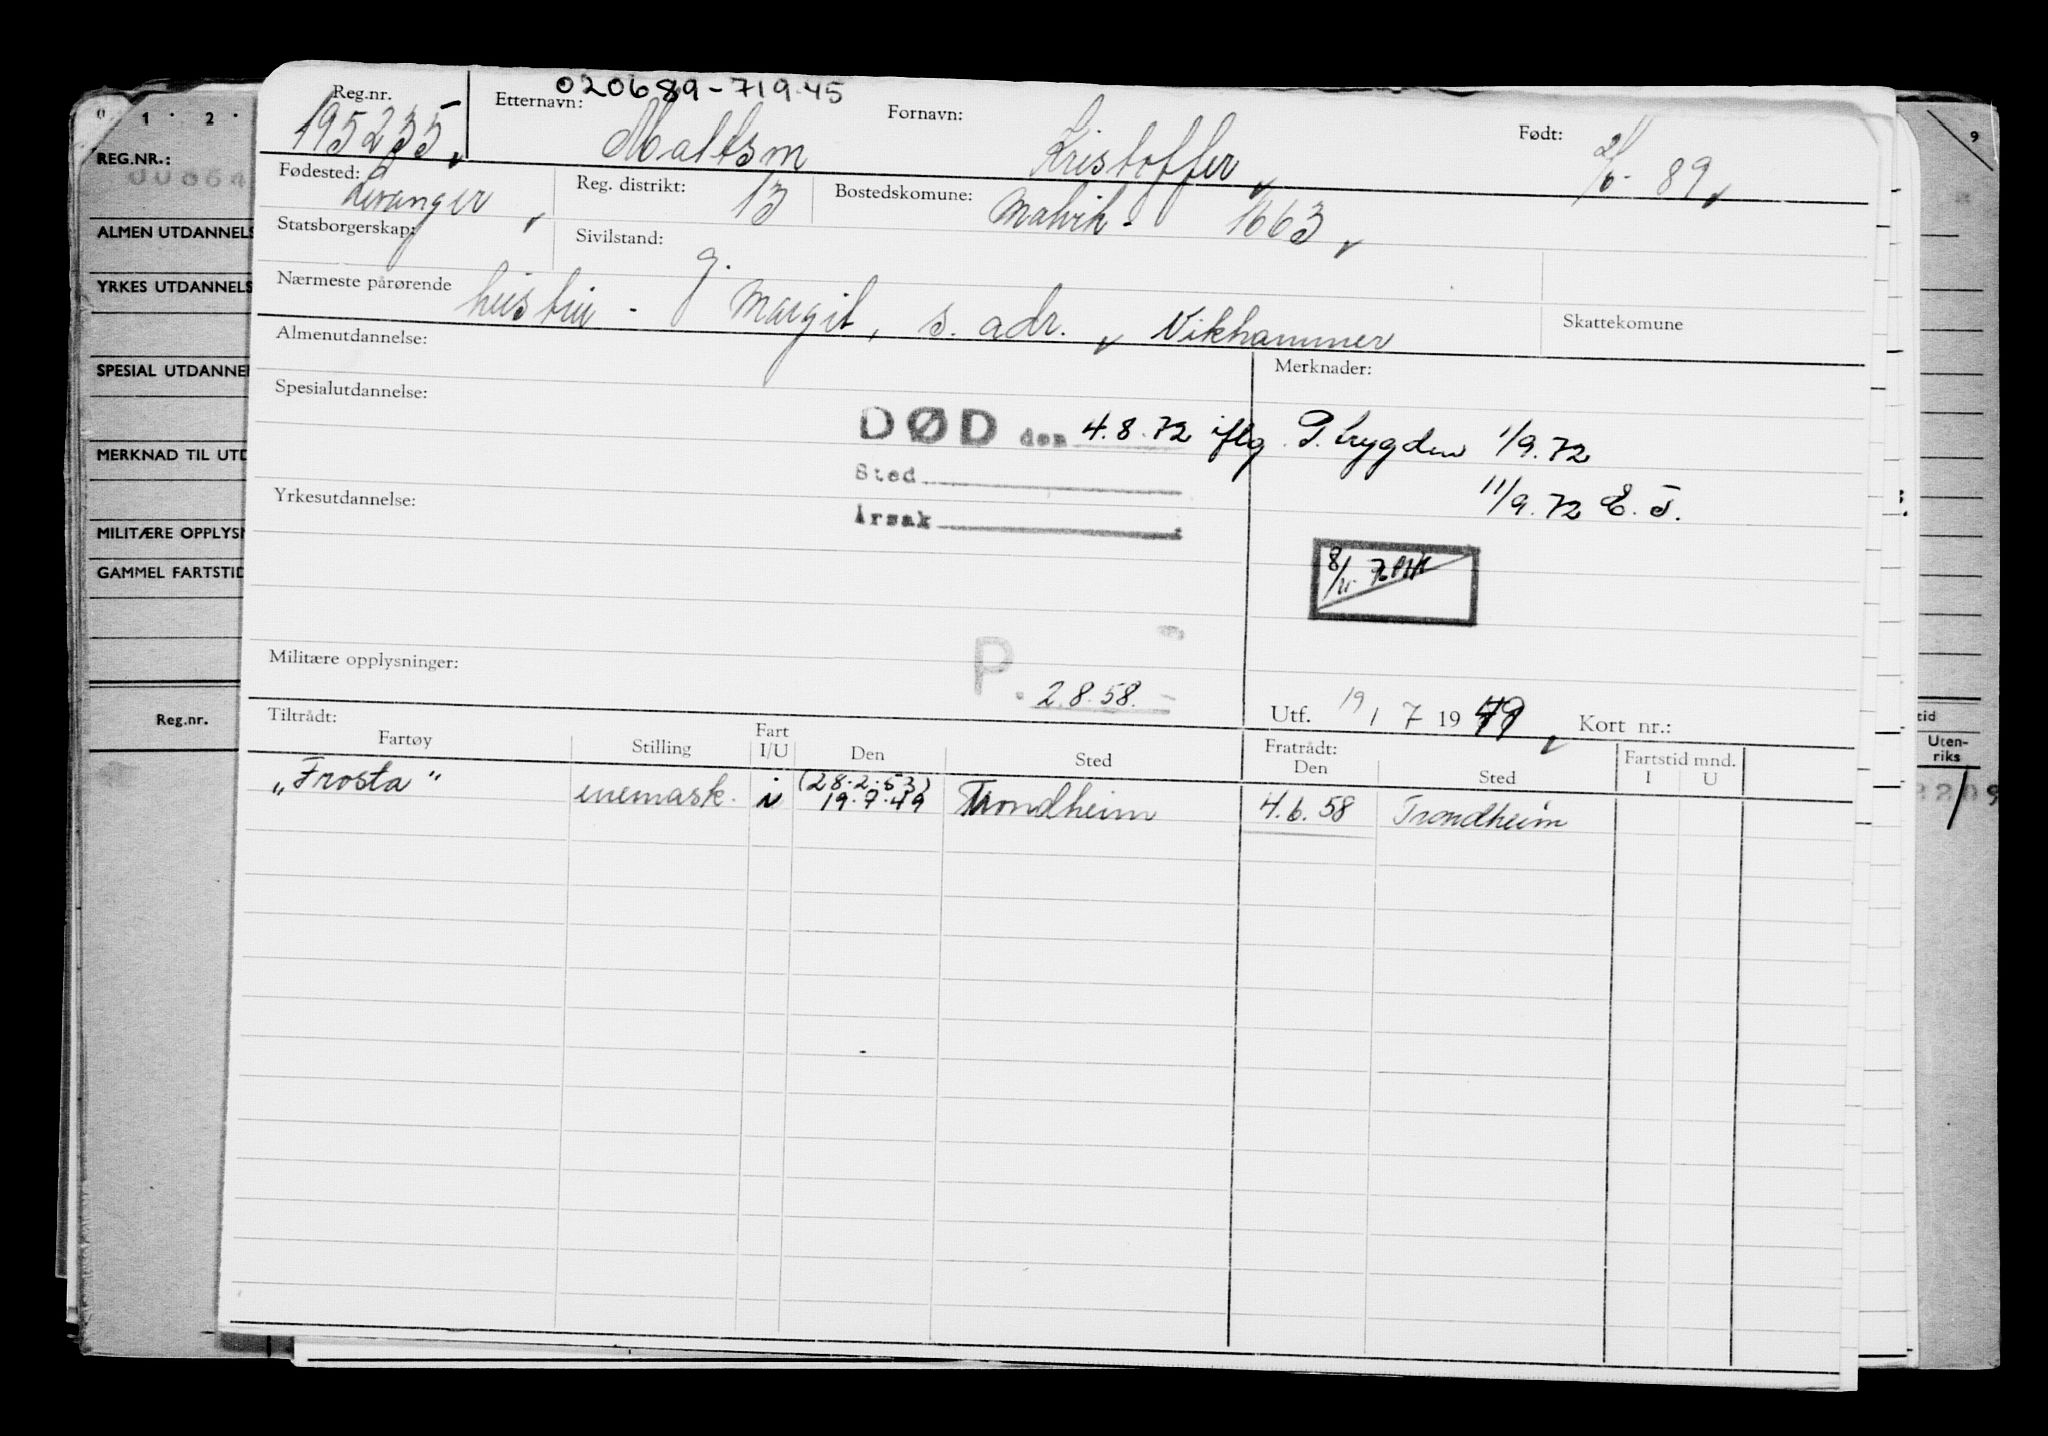 020689-719.45
Reg.nr. Etternavn: Fornavn: Født:
195235 Maltsm Kristoffer 2/6-89
Fødested: Levanger Reg. distrikt: 13 Bostedskomune: Malvik - 1663
Statsborgerskap: Sivilstand: g.
Nærmeste pårørende hustru - Margit, s. adr. Vikhammer Skattekomune
Almenutdannelse: Merknader:
Spesialutdannelse:
DØD den 4.8.72 iflg. P. trygden 1/9.72
Sted 11/9.72 E. T.
Yrkesutdannelse: Årsak
8/11
Militære opplysninger: P. 2.8.58.
Utf. 19/7 1949 Kort nr.:
Tiltrådt: Fratrådt: Fartstid mnd.
Fartøy Stilling Fart I/U Den Sted Den Sted I U
„Frosta" enemask. i (28.2.53) 19.7.49 Trondheim 4.6.58 Trondheim
0 1 2 9
REG.NR.:
00064
ALMEN UTDANNELS
YRKES UTDANNELS
SPESIAL UTDANNE
MERKNAD TIL UTD
MILITÆRE OPPLYSN
GAMMEL FARTSTID
Reg.nr.
tid
Uten-
riks
2209